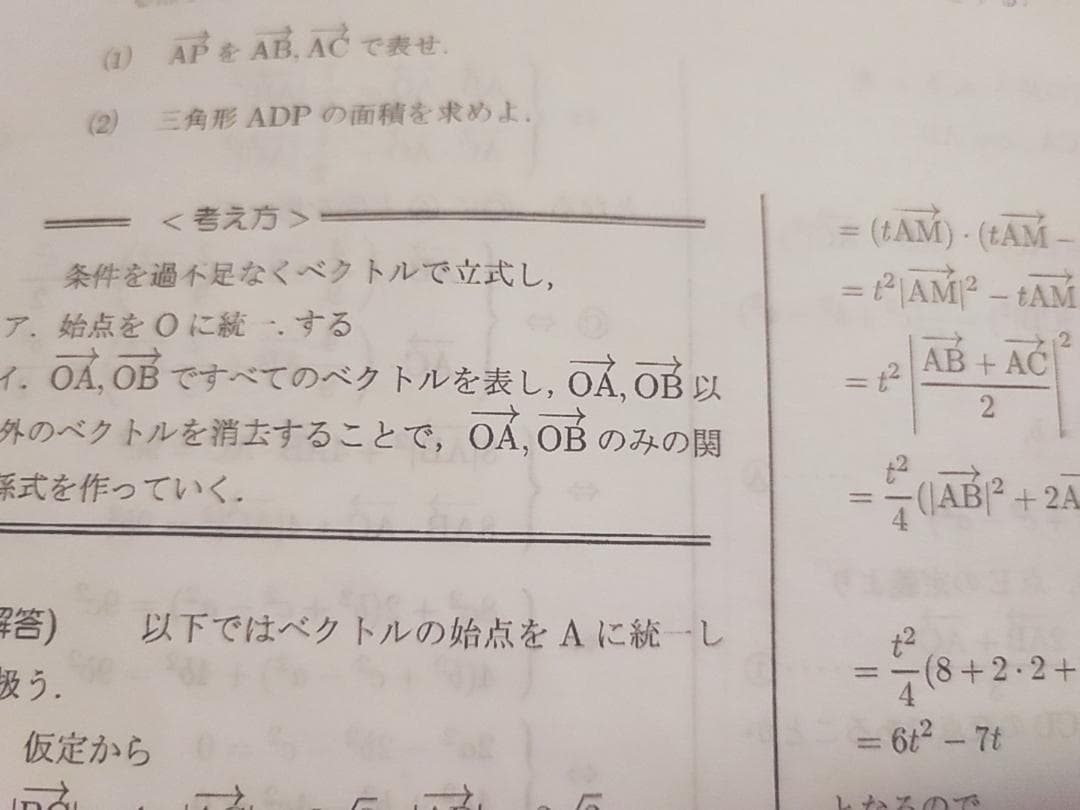 (1) AP→ を AB→, AC→ で表せ.
(2) 三角形 ADP の面積を求めよ.
<考え方>
条件を過不足なくベクトルで立式し,
ア. 始点を O に統一する
イ. OA→, OB→ ですべてのベクトルを表し, OA→, OB→ 以
外のベクトルを消去することで, OA→, OB→ のみの関
係式を作っていく.
解答) 以下ではベクトルの始点を A に統一し
扱う.
仮定から
= (tAM→)・(tAM→ −
= t²|AM→|² − tAM→
= t² |(AB→ + AC→)/2|²
= t²/4 (|AB→|² + 2A
= t²/4 (8 + 2・2 +
= 6t² − 7t
となるので